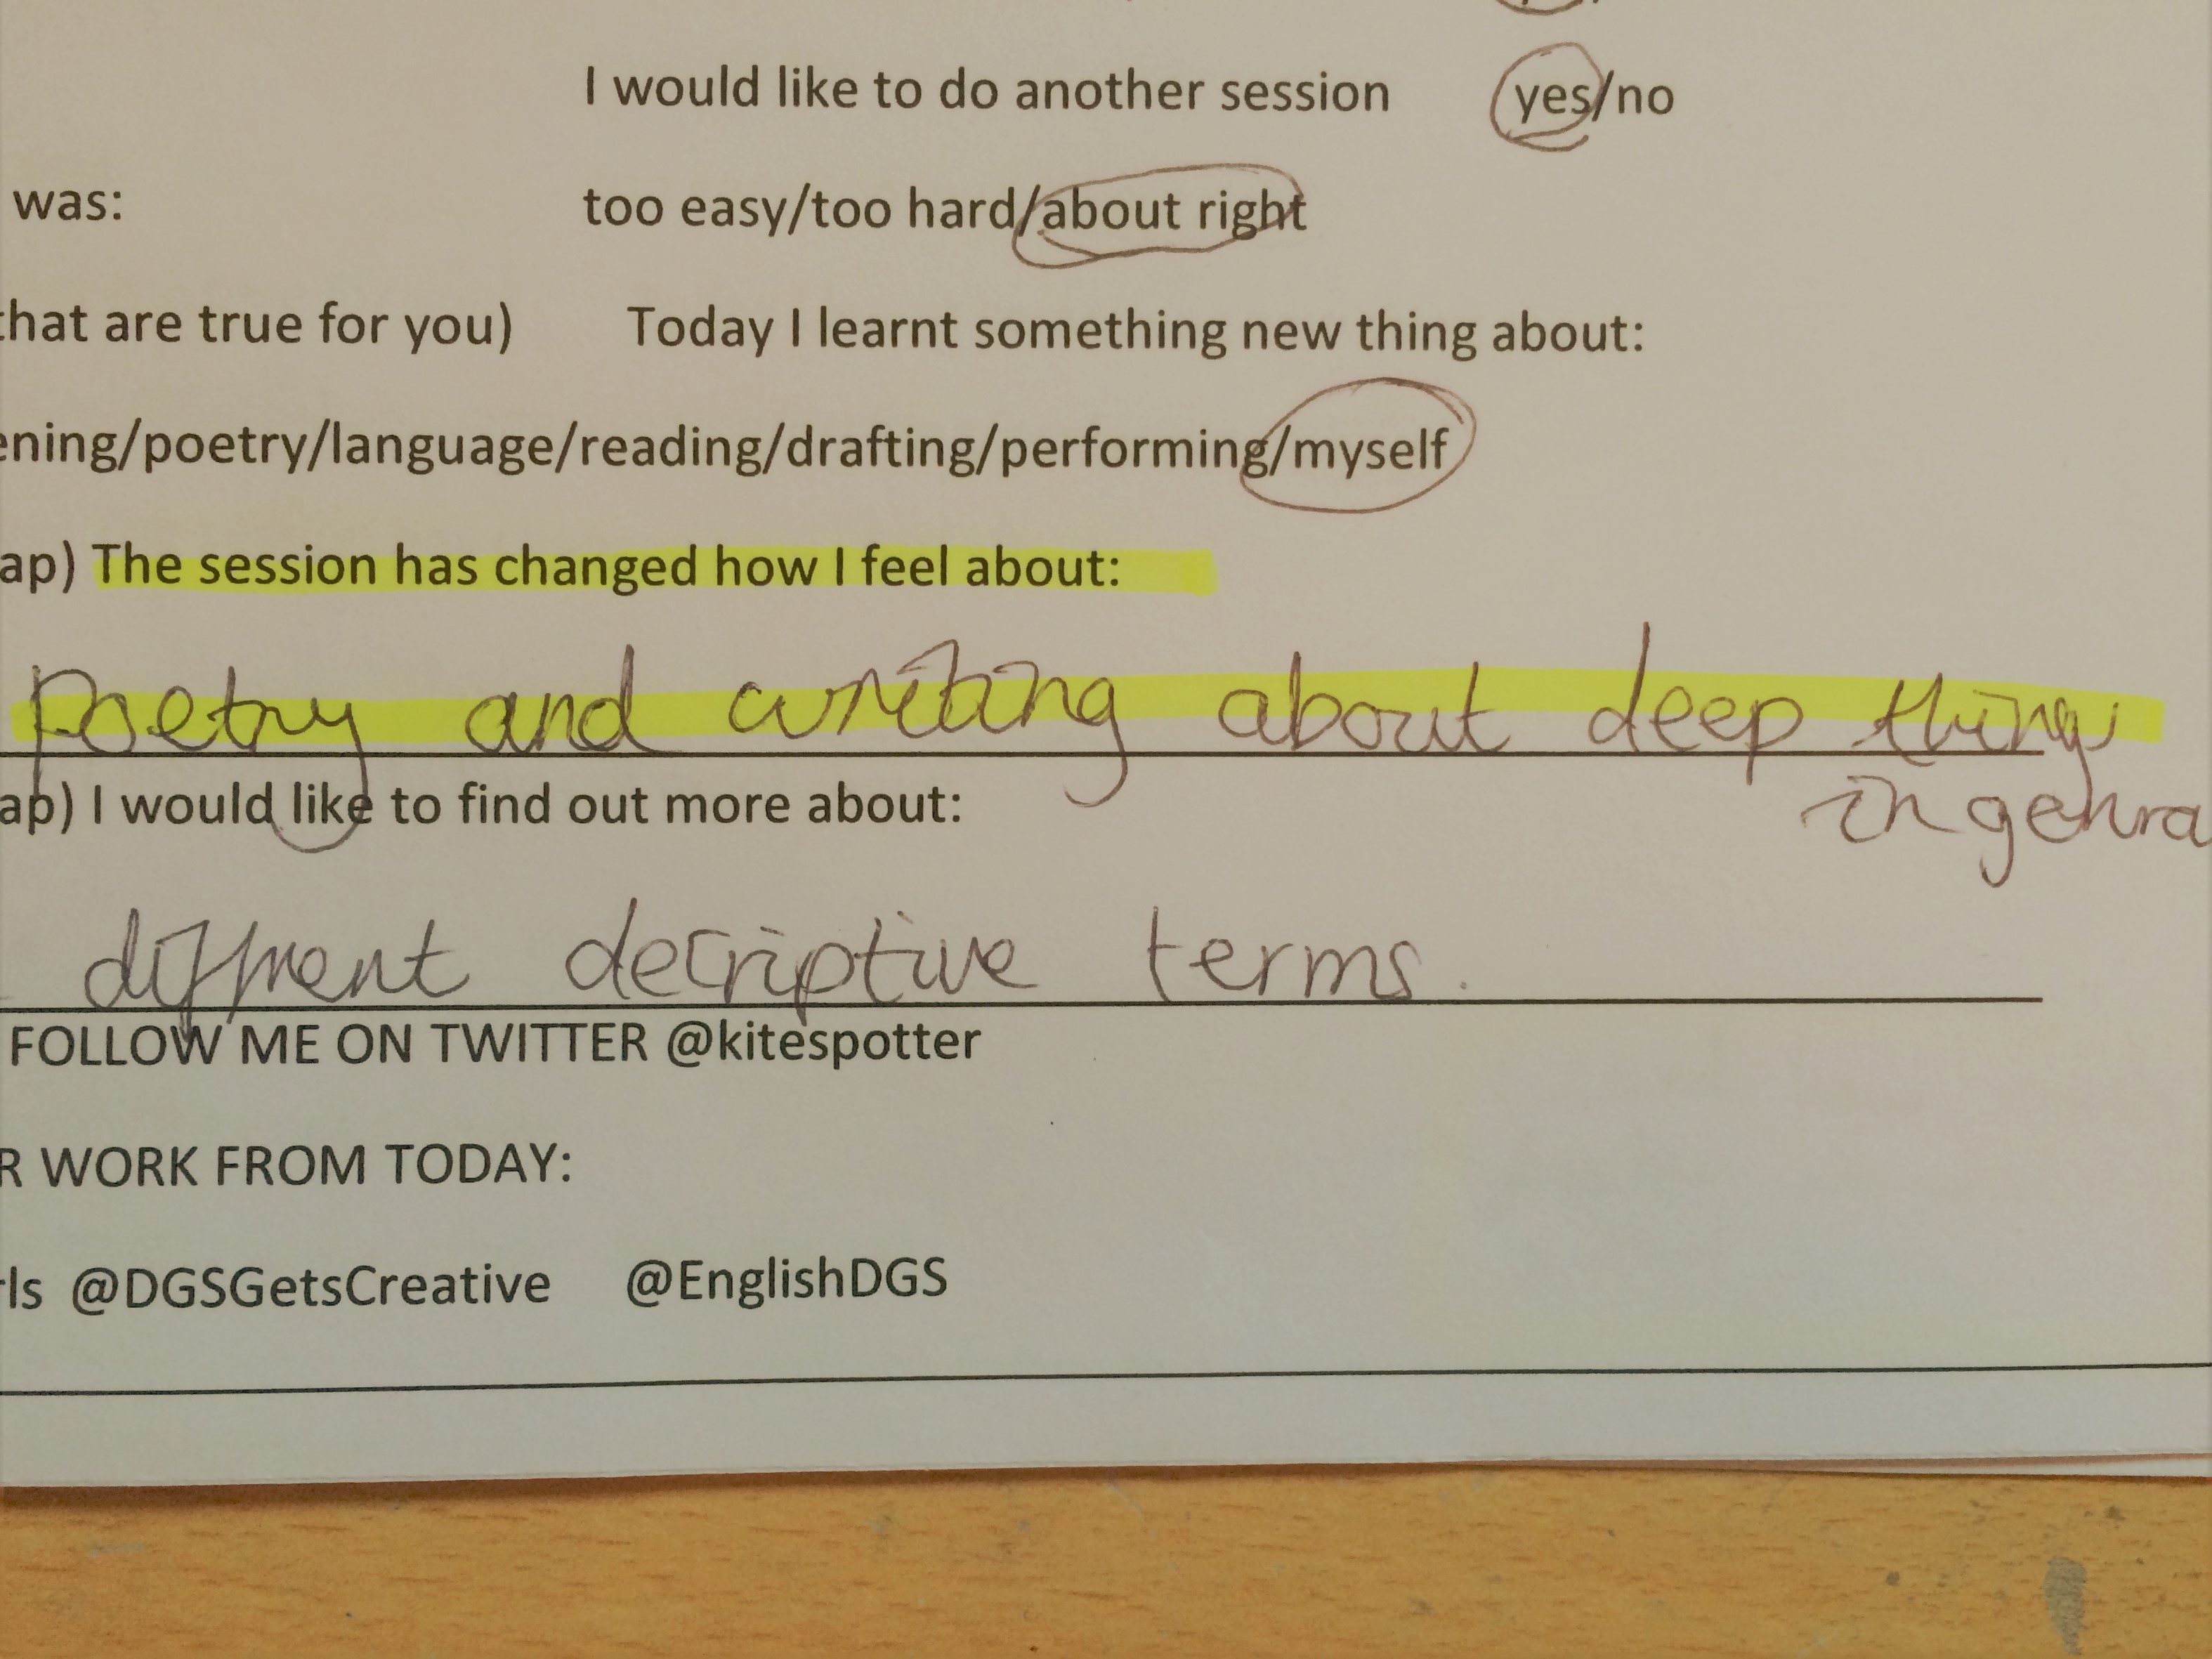 I would like to do another session yes/no
was: too easy/too hard/about right
that are true for you) Today I learnt something new thing about:
ening/poetry/language/reading/drafting/performing/myself
ap) The session has changed how I feel about:
Poetry and writing about deep things
ap) I would like to find out more about:
in genra
diffrent decriptive terms.
FOLLOW ME ON TWITTER @kitespotter
R WORK FROM TODAY:
rls @DGSGetsCreative @EnglishDGS